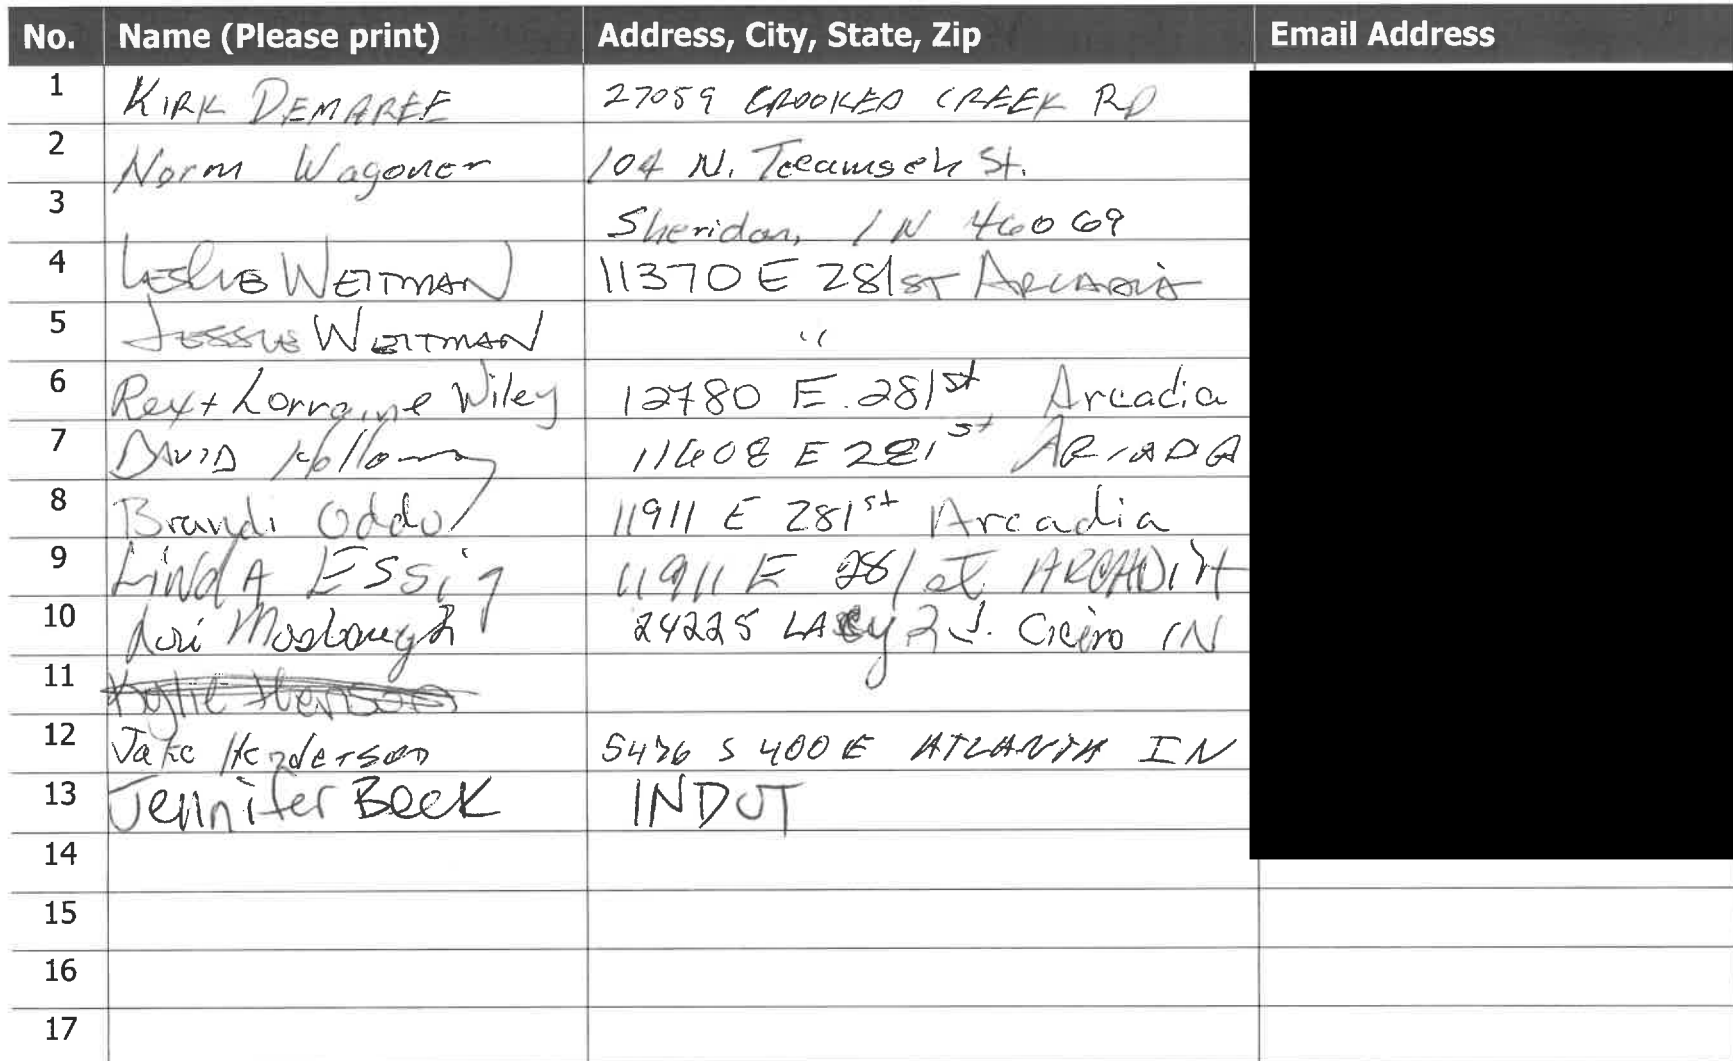 No. Name (Please print) Address, City, State, Zip Email Address
1 KIRK DEMAREE 27059 CROOKED CREEK RD
2 Norm Wagoner 104 N. Tecumseh St.
3 Sheridan, IN 46069
4 LESLIE WEITMAN 11370 E 281ST ARCADIA
5 JESSIE WEITMAN "
6 Rex + Lorraine Wiley 12780 E. 281st Arcadia
7 DAVID Holloway 11608 E 281st
8 Brandi Oddo 11911 E 281st Arcadia
9 LINDA ESSig 11911 E 281st ARCADIA
10 Lori Mosbaugh 24225 LACY Cicero IN
11
12 Jake Henderson S 400 E ATLANTA IN
13 Jennifer Beck INDOT
14
15
16
17